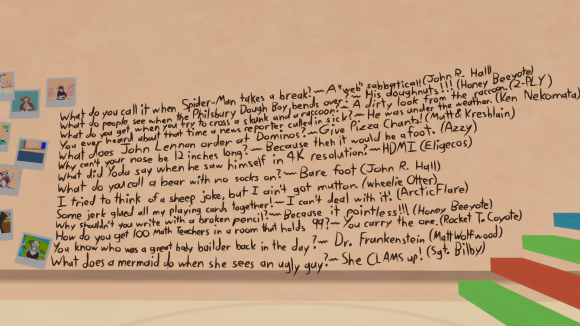 What do you call it when Spider-Man takes a break?~ A "web" sabbatical! (John R. Hall)
What do people see when the Philsbury Dough Boy bends over?~ His doughnuts!!! (Honey Beeyote)
What do you get when you try to cross a skunk and a raccoon?~ A dirty look from the raccoon. (2-PLY)
You ever heard about that time a news reporter called in sick?~ He was under the weather. (Ken Nekomata)
What does John Lennon order at Dominos?~ Give Pizza Chants! (Mutt & Kreshlain)
Why can't your nose be 12 inches long?~ Because then it would be a foot. (Azzy)
What did Yoda say when he saw himself in 4K resolution?~ HDMI (Eligecos)
What do you call a bear with no socks on?~ Bare foot (John R. Hall)
I tried to think of a sheep joke, but I ain't got mutton. (Wheelie Otter)
Some jerk glued all my playing cards together!~ I can't deal with it! (ArcticFlare)
Why shouldn't you write with a broken pencil?~ Because it pointless!!! (Honey Beeyote)
How do you get 100 Math Teachers in a room that holds 99?~ You carry the one. (Rocket T. Coyote)
You know who was a great baby builder back in the day?~ Dr. Frankenstein (Matt Wolfwood)
What does a mermaid do when she sees an ugly guy?~ She CLAMS up! (Sgt. Bilby)